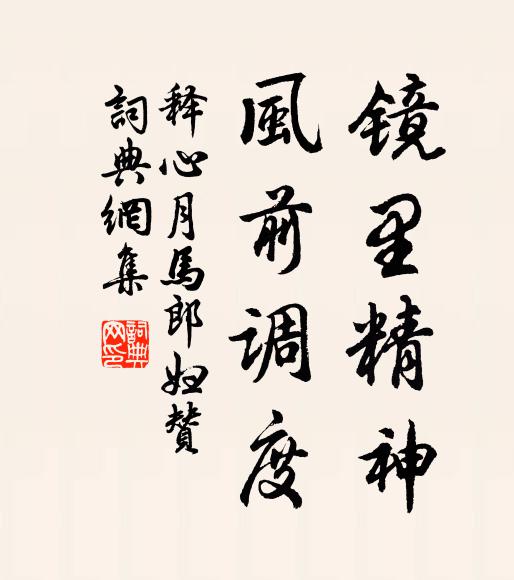 镜里精神
風前调度
释心月馬郎妇赞
詞典網集
詞典网印